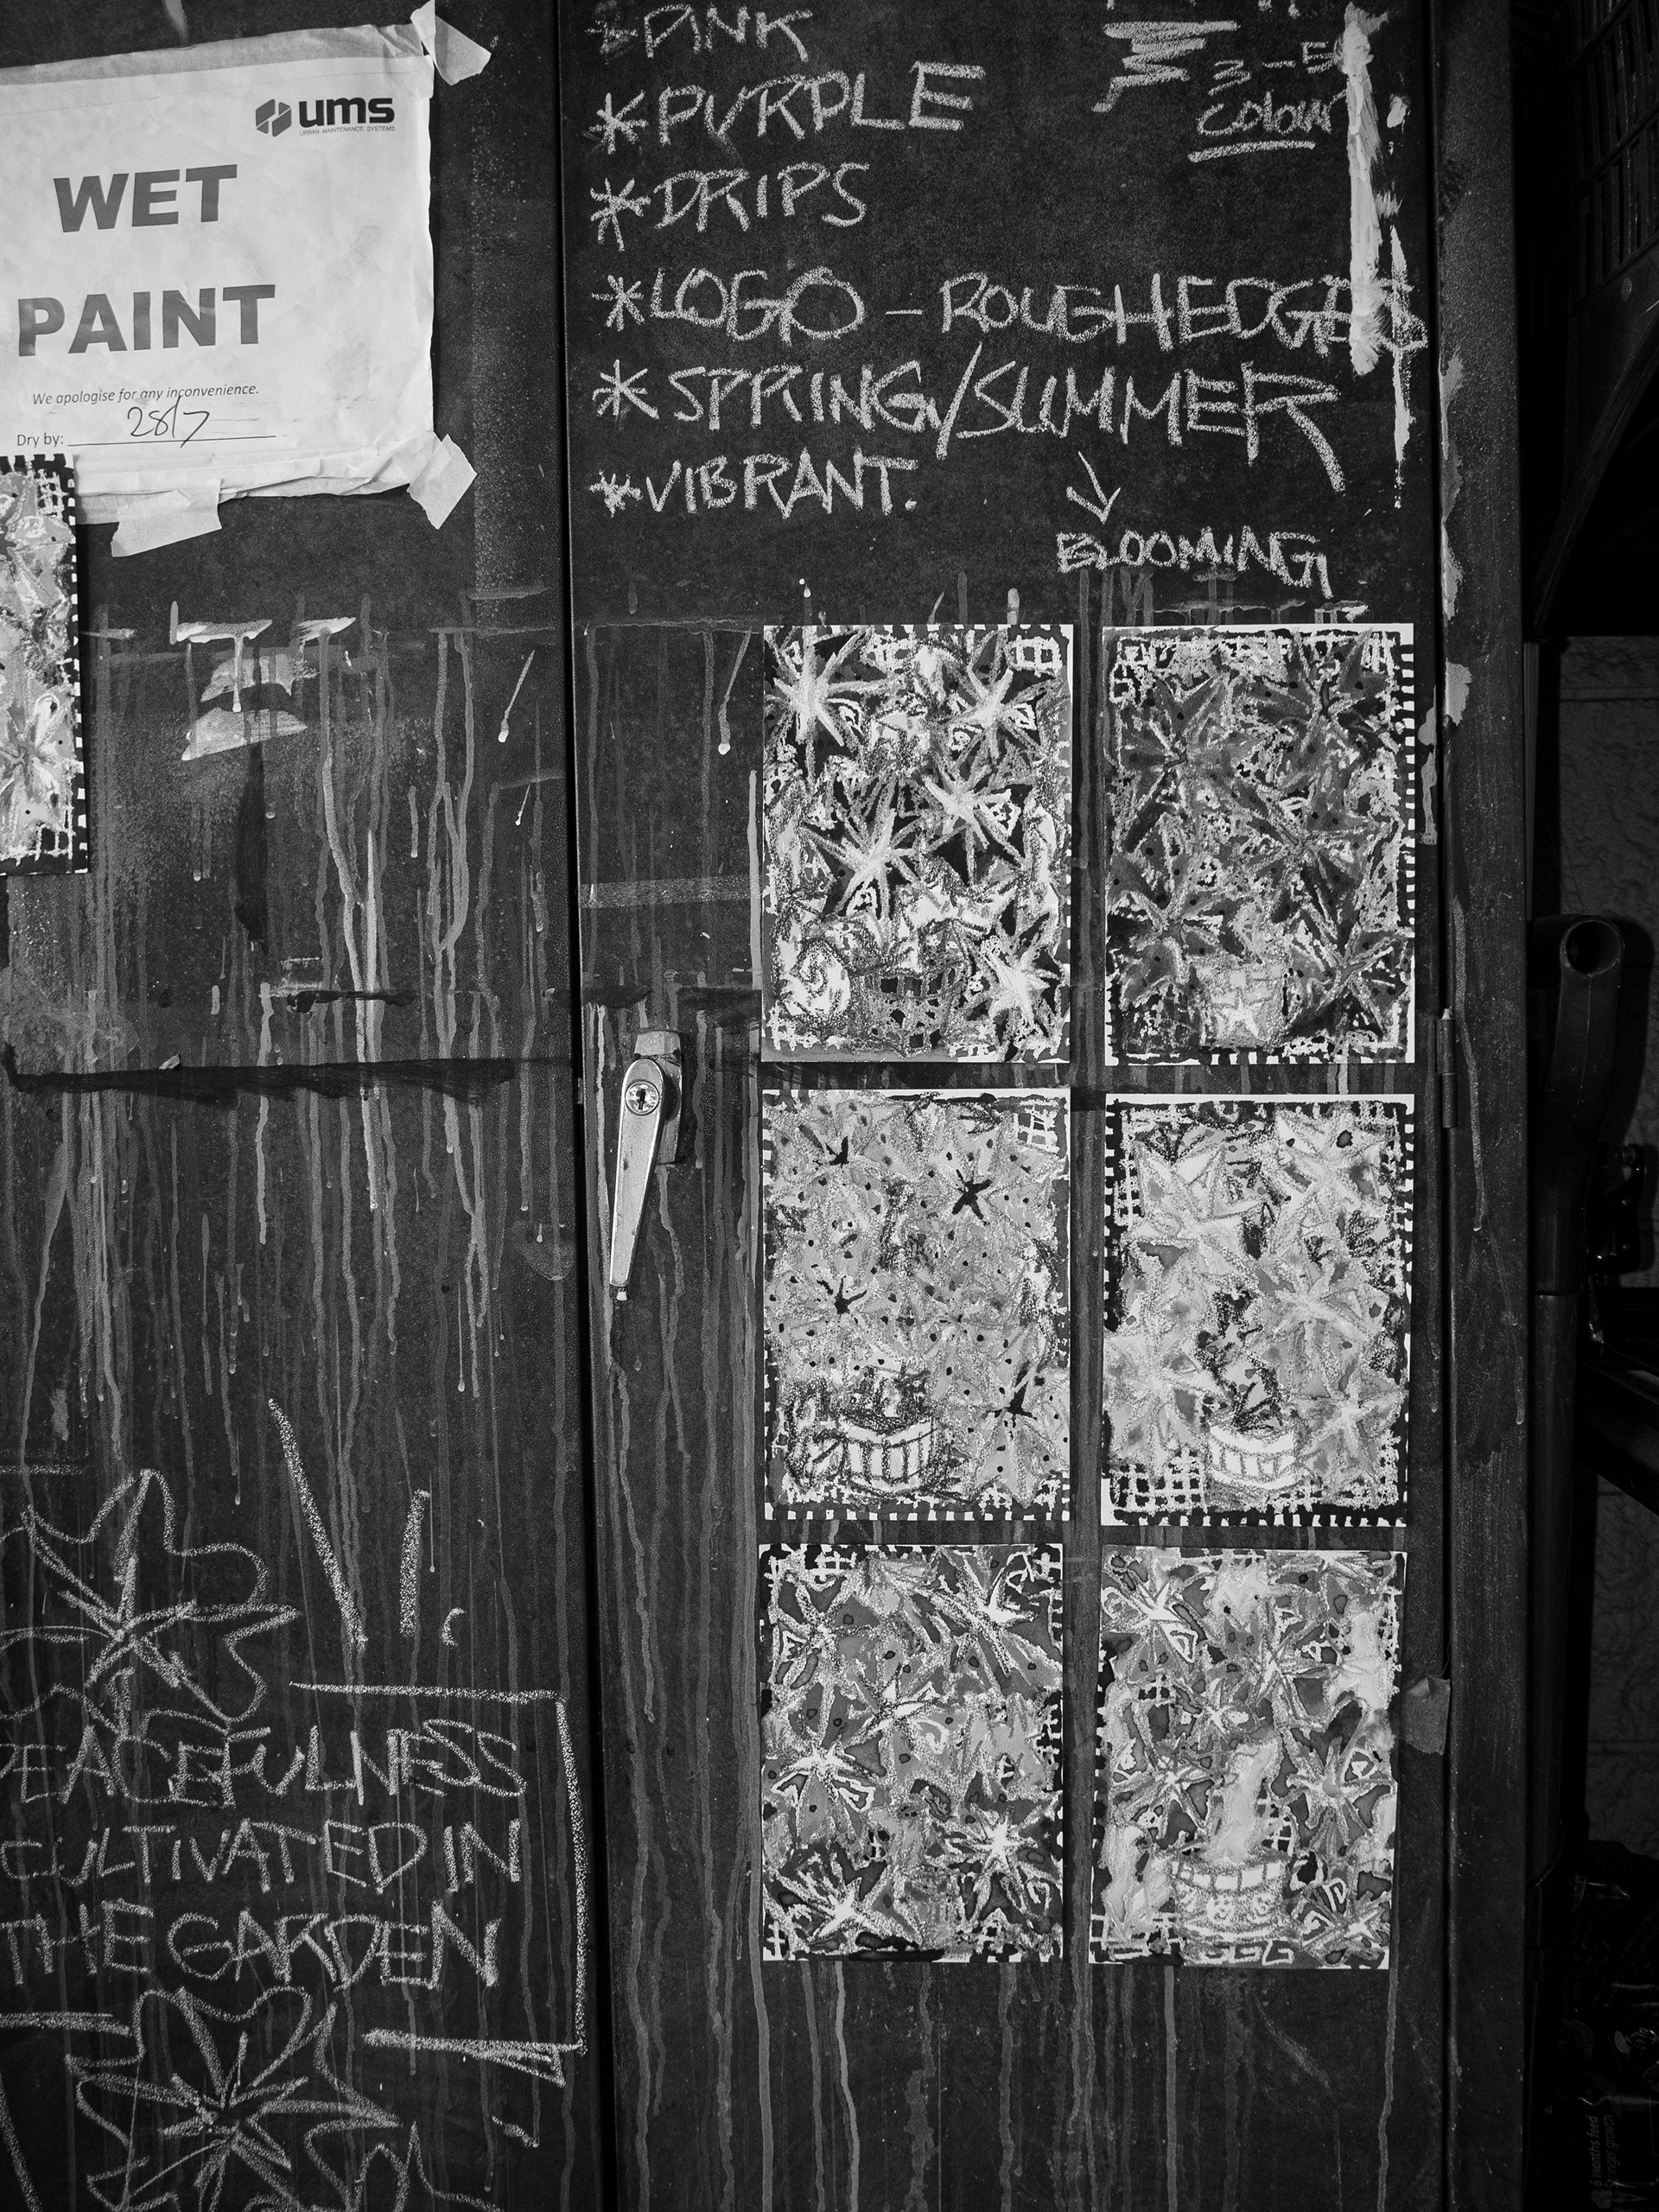 ums
URBAN MAINTENANCE SYSTEMS
WET
PAINT
We apologise for any inconvenience.
Dry by: 28/7
* PINK
* PURPLE
* DRIPS
* LOGO - ROUGH EDGES
* SPRING/SUMMER
* VIBRANT.
BLOOMING
3-5
colour
PEACEFULNESS
CULTIVATED IN
THE GARDEN
GGG